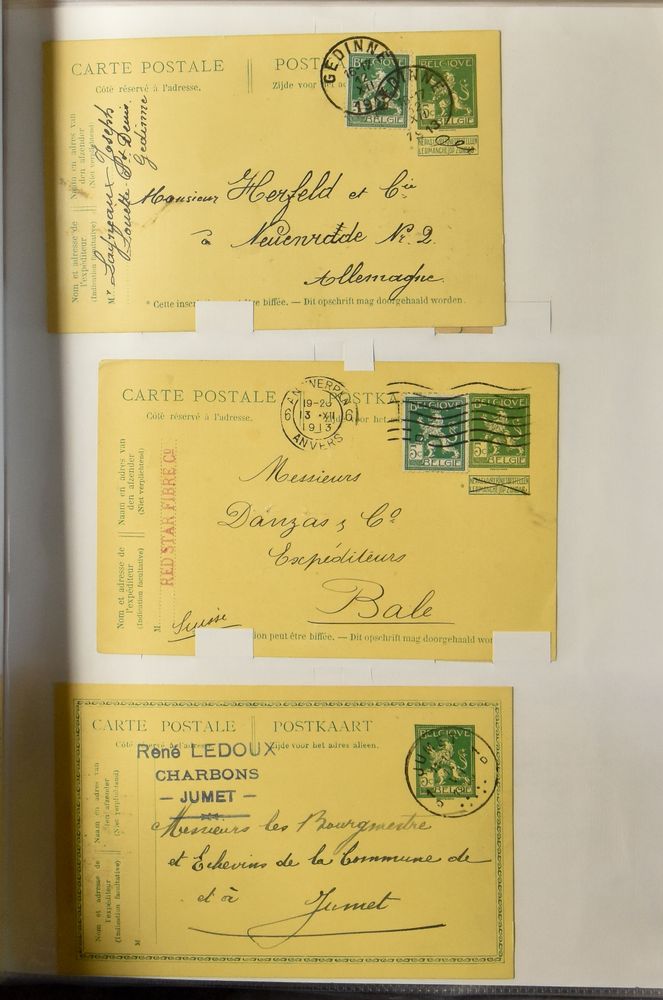 CARTE POSTALE
POST
Côté réservé à l'adresse.
Zijde voor het
GEDINNE
BELGIQUE
BELGIE
1913
Naam en adres van
den afzender
(Niet verplichtend)
Nom et adresse de
l'expéditeur
(Indication facultative)
M
Joseph
Louette-St Denis
Gedinne
Monsieur Herfeld et Cie
à Neuenrade Nr. 2
Allemagne.
* Cette ins être biffée. — Dit opschrift mag doorgehaald worden.
CARTE POSTALE
POSTKA
Côté réservé à l'adresse.
ANTWERPEN
6 19-20 6
13 XII
1913
ANVERS
BELGIQUE
5c BELGIE
BELGIQUE
5c BELGIE
Naam en adres van
den afzender
(Niet verplichtend)
Nom et adresse de
l'expéditeur
(Indication facultative)
M
RED STAR FIBRE Co
Messieurs
Danzas & Co
Expéditeurs
Bale
Suisse
ion peut être biffée. — Dit opschrift mag doorgehaald wor
CARTE POSTALE
POSTKAART
Zijde voor het adres alleen.
BELGIQUE
5c BELGIE
René LEDOUX
CHARBONS
— JUMET —
Naam en adres van
den afzender
(Niet verplichtend)
Nom et adresse de
l'expéditeur
(Indication facultative)
M
Messieurs les Bourgmestre
et Echevins de la Commune de
et à Jumet